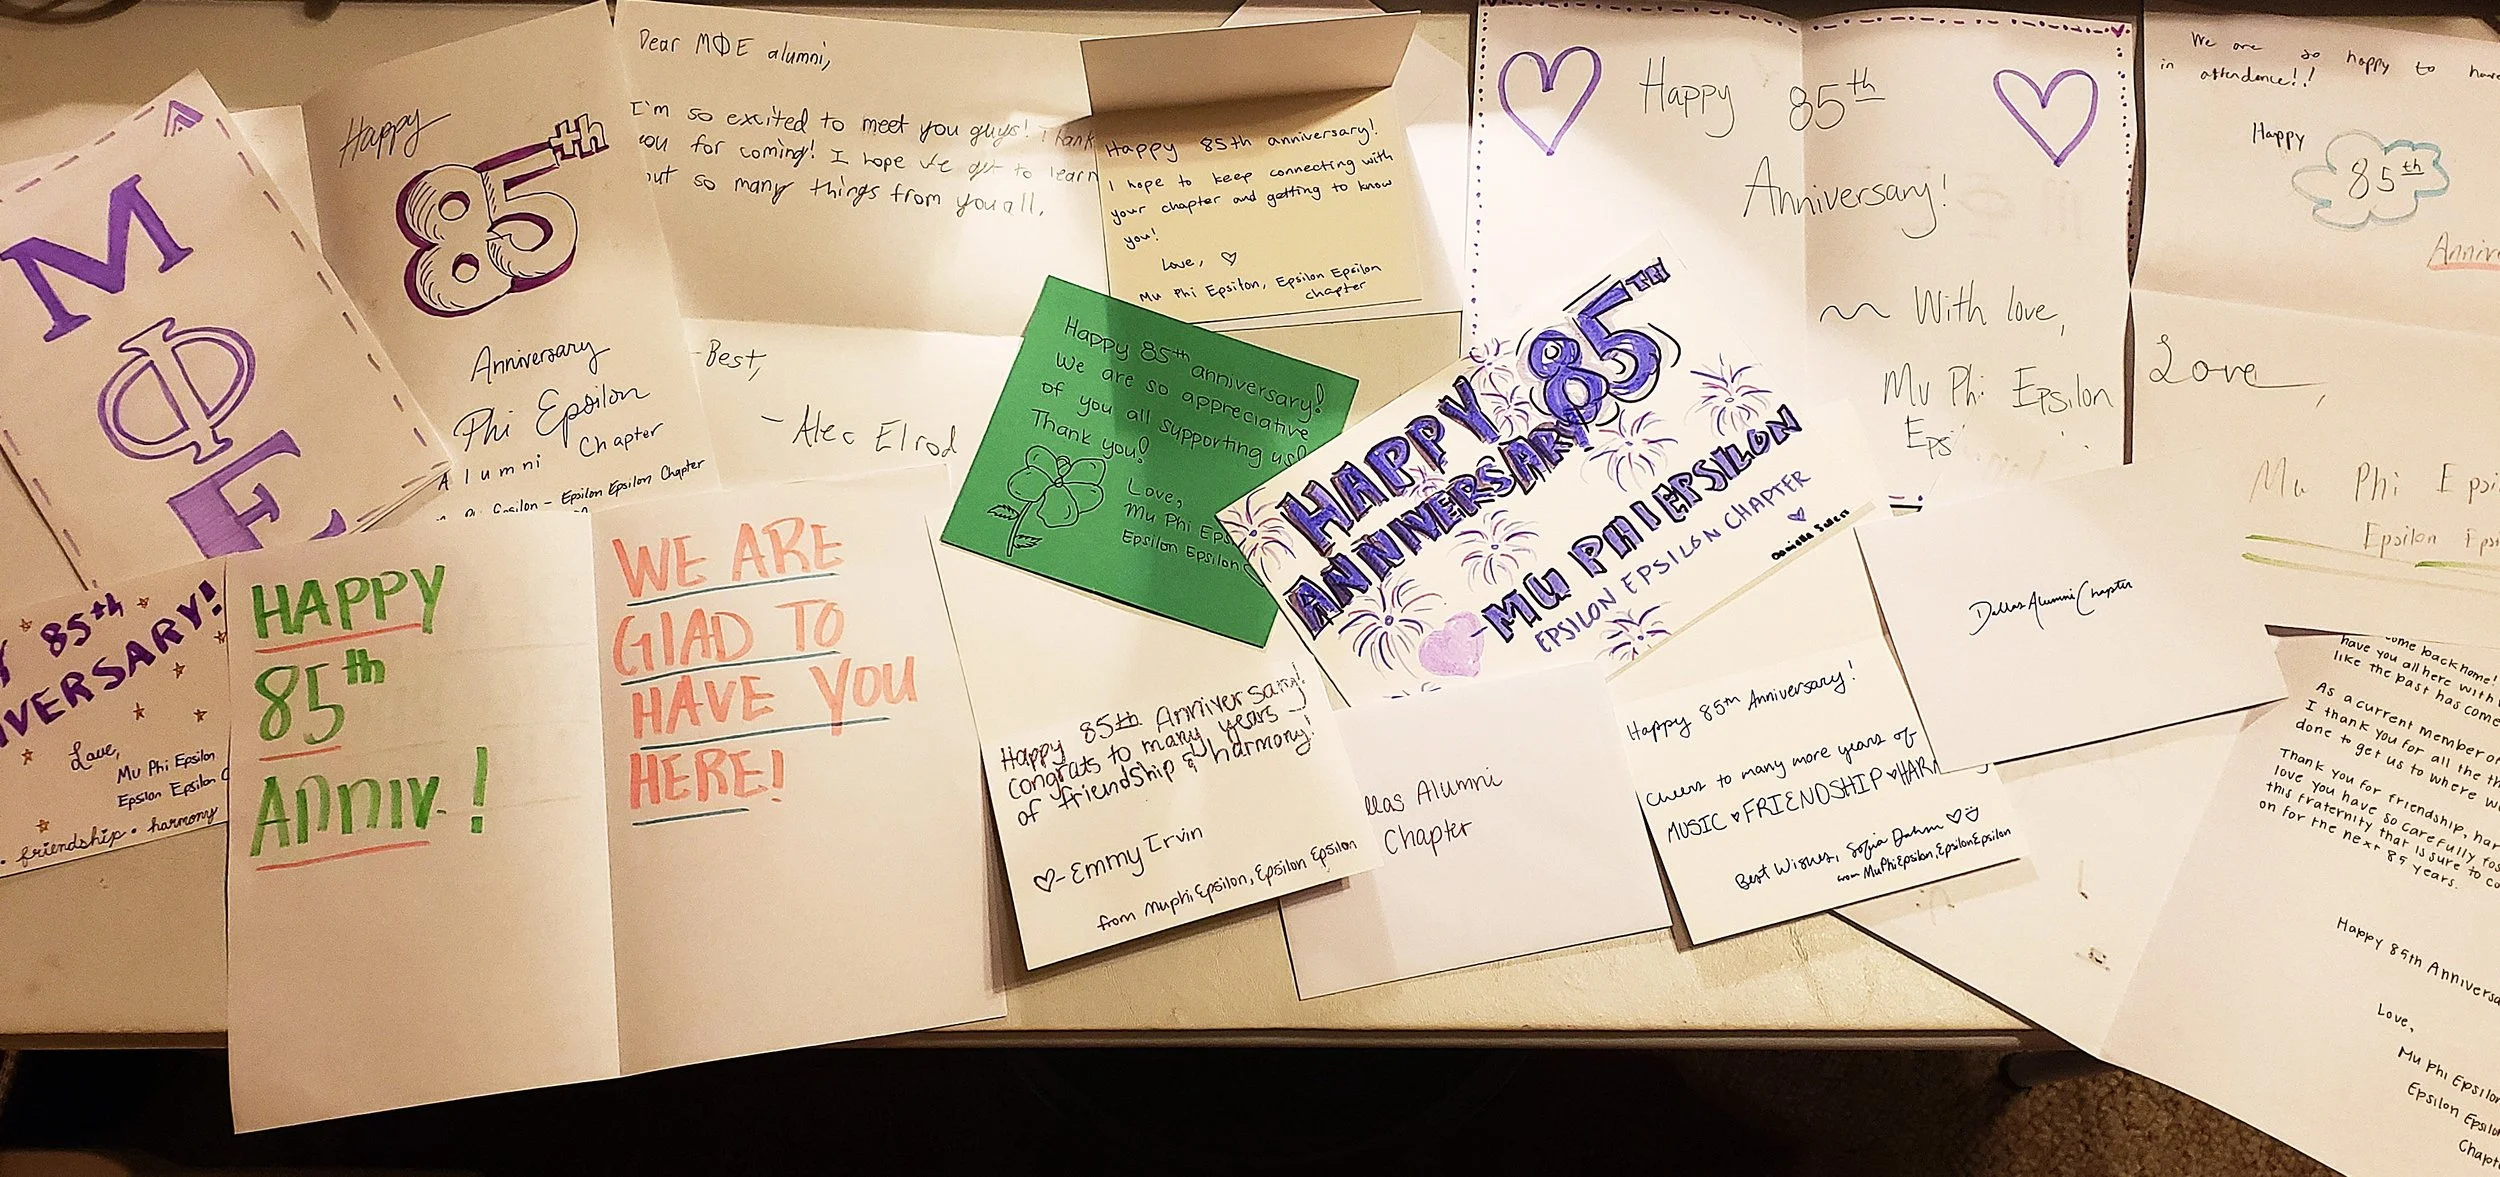 ΜΦΕ
Happy
85th
Anniversary
Phi Epsilon
Alumni Chapter
Epsilon – Epsilon Epsilon Chapter
Dear MΦE alumni,
I'm so excited to meet you guys! Thank
you for coming! I hope we get to learn
out so many things from you all.
Best,
- Alec Elrod
Happy 85th anniversary!
I hope to keep connecting with
your chapter and getting to know
you!
Love, ♡
Mu Phi Epsilon, Epsilon Epsilon
chapter
Happy 85th
Anniversary!
~ With love,
Mu Phi Epsilon
Eps
We are so happy to have
in attendence!!
Happy
85th
Anniv
Love,
Mu Phi Epsi
Epsilon Eps
Happy 85th anniversary!
We are so appreciative
of you all supporting us!
Thank you!
Love,
Mu Phi Eps
Epsilon Epsilon
HAPPY 85TH
ANNIVERSARY!
-MU PHI EPSILON
EPSILON EPSILON CHAPTER
85th
VERSARY!
Love,
Mu Phi Epsilon
Epsilon Epsilon C
• friendship • harmony
HAPPY
85th
Anniv.!
WE ARE
GLAD TO
HAVE YOU
HERE!
Happy 85th Anniversary!
congrats to many years
of friendship & harmony!
♡-Emmy Irvin
from Mu phi Epsilon, Epsilon Epsilon
llas Alumni
Chapter
Happy 85th Anniversary!
Cheers to many more years of
MUSIC ♥ FRIENDSHIP ♥ HAR
Best Wishes, Sofia Dahm ♡
from Mu Phi Epsilon, Epsilon Epsilon
Dallas Alumni Chapter
ome back home!
have you all here with
like the past has come
As a current member of
I thank you for all the th
done to get us to where w
Thank you for friendship, har
love you have so carefully fos
this fraternity that is sure to c
on for the next 85 years.
Happy 85th Anniversa
Love,
Mu Phi Epsilon
Epsilon Epsilo
Chapt